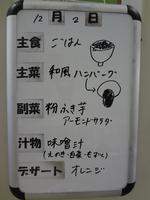 12月2日
主食 ごはん
主菜 和風ハンバーグ
副菜 粉ふき芋
アーモンドサラダ
汁物 味噌汁
(えのき・白菜・もずく)
デザート オレンジ